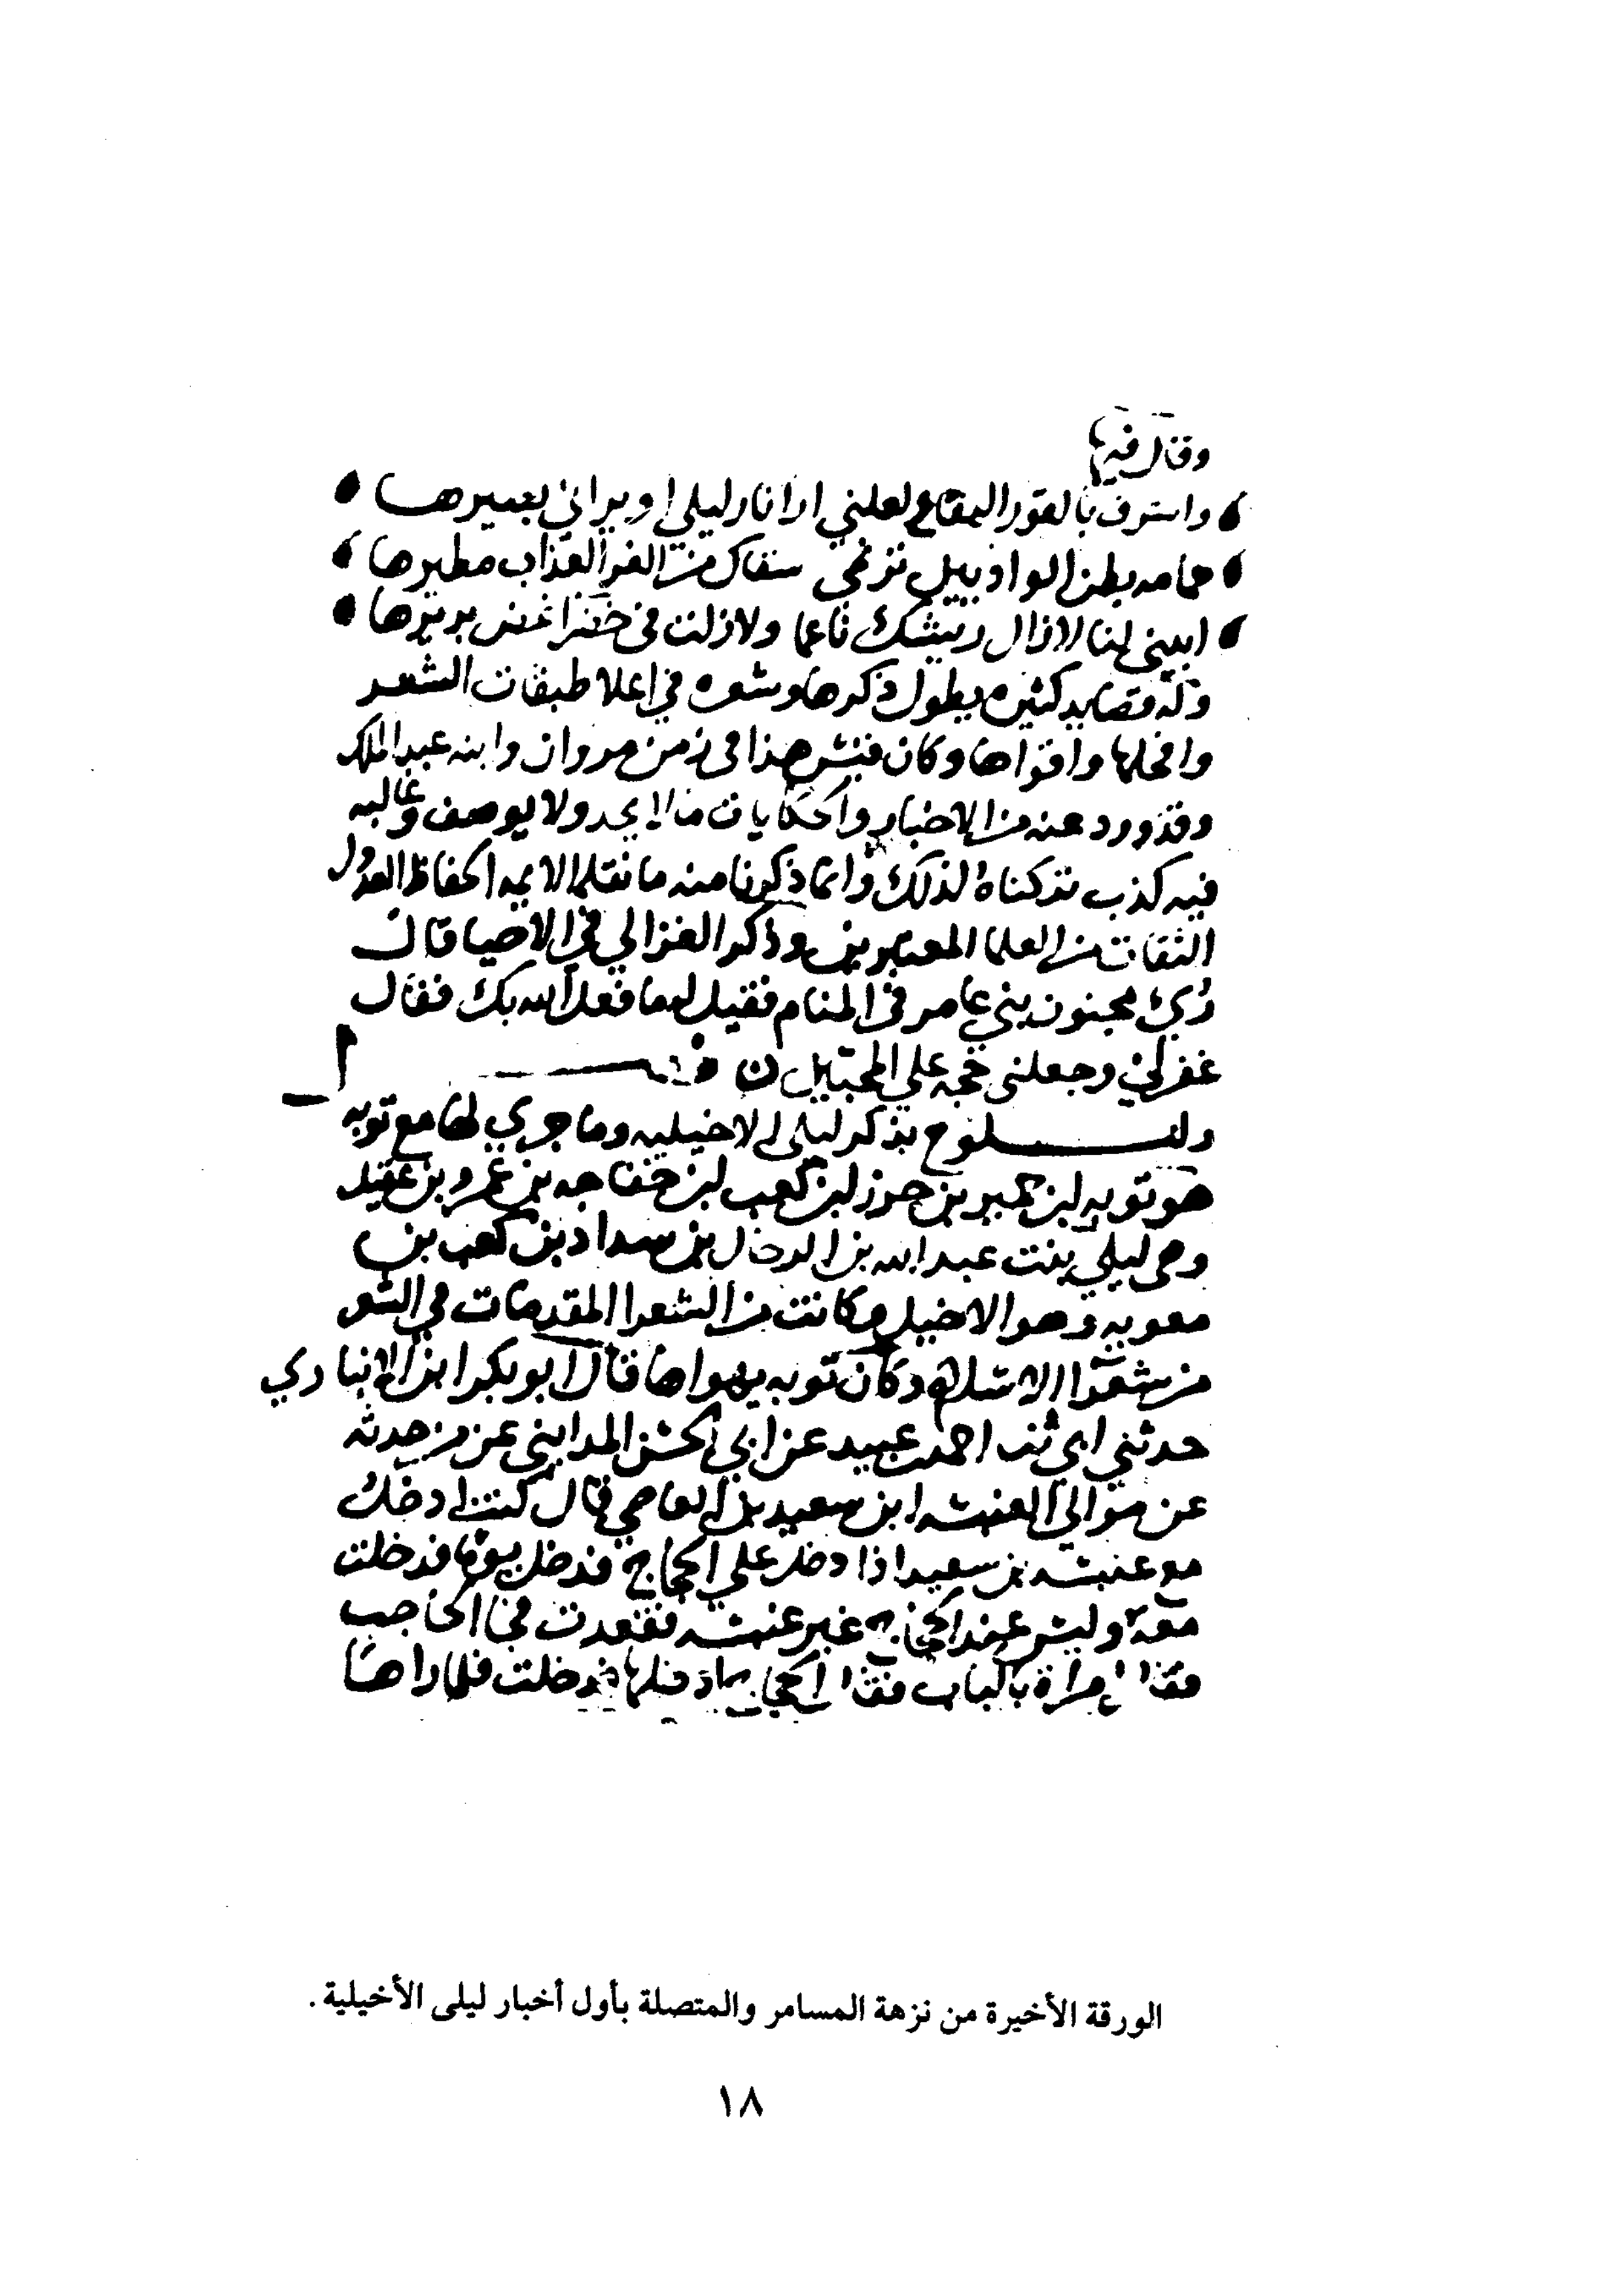 وقال فيها
واشرف بالقور اليفاع لعلني ارا نار ليلى او يراني بصيرها
حمامه بطن الواديين ترنمي سقاك من الغر العذاب مطيرها
ابيني لنا لازال ريشك ناعما ولازلت في خضرا غض بريرها
وله قصايد كثيره يطول ذكرها وشعره في اعلا طبقات الشعر
وافحلها واقواها وكان قيس هذا في زمن مروان وابنه عبد الملك
وقد ورد عنه من الاخبار والحكايات مالا يحد ولا يوصف وغالبه
فيه كذب تركناه لذلك وانما ذكرنا منه ما نقله الايمه الحفاظ العدول
الثقات من العلما المعتبرين وذكر الغزالي في الاحيا قال
رئ مجنون بني عامر في المنام فقيل له ما فعل الله بك فقال
غفر لي وجعلني حجه علي المحبين
ولـــنلوح بذكر ليلى الاخيليه وما جري لها مع توبه
هو توبه ابن حمير بن حرز ابن كعب ابن خفاجه بن عمرو بن عقيل
وهي ليلي بنت عبد الله بن الرحال بن سداد بن كعب بن
معويه وهو الاخيل وكانت من الشعرا المقدمات في الشعر
من شعرا الاسلام وكان توبه يهواها قال ابو بكر ابن الانباري
حدثني ابي ثنا احمد بن عبيد عن ابي الحسن المدايني عن من حدثه
عن موالي العنبسه ابن سعيد بن العاصي قال كنت ادخل
مع عنبسه بن سعيد اذا دخل علي الحجاج فدخل يوما فدخلت
معه وليس عند الحجاج غير عنبسه فقعدت الحاجب
فقال امراة بالباب فقال الحجاج فدخلت فلما راها
الورقة الأخيرة من نزهة المسامر والمتصلة بأول أخبار ليلى الأخيلية.
١٨